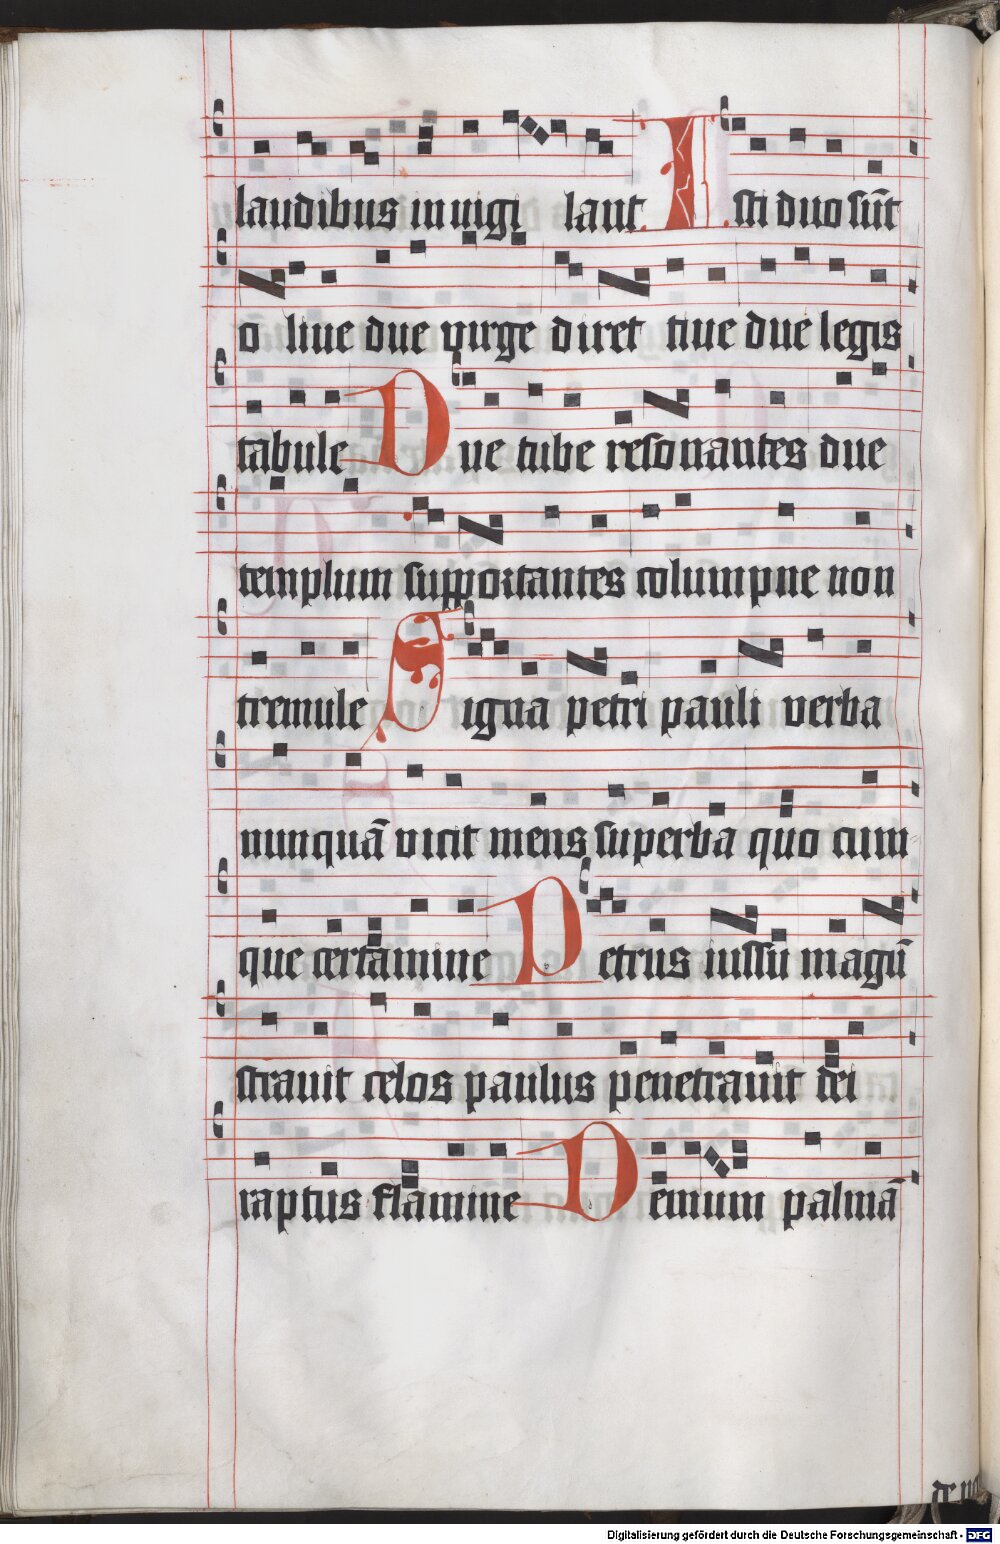 laudibus in uigi lant. Isti duo sūt
o liue due virge diret tiue due legis
tabule Due tube resonantes due
templum supportantes columpne non
tremule Signa petri pauli verba
nunquā vicit mens superba quo cum
que certamine Petrus iussu magū
strauit celos paulus penetrauit dei
raptus flamine Demum palmā
Digitalisierung gefördert durch die Deutsche Forschungsgemeinschaft - DFG